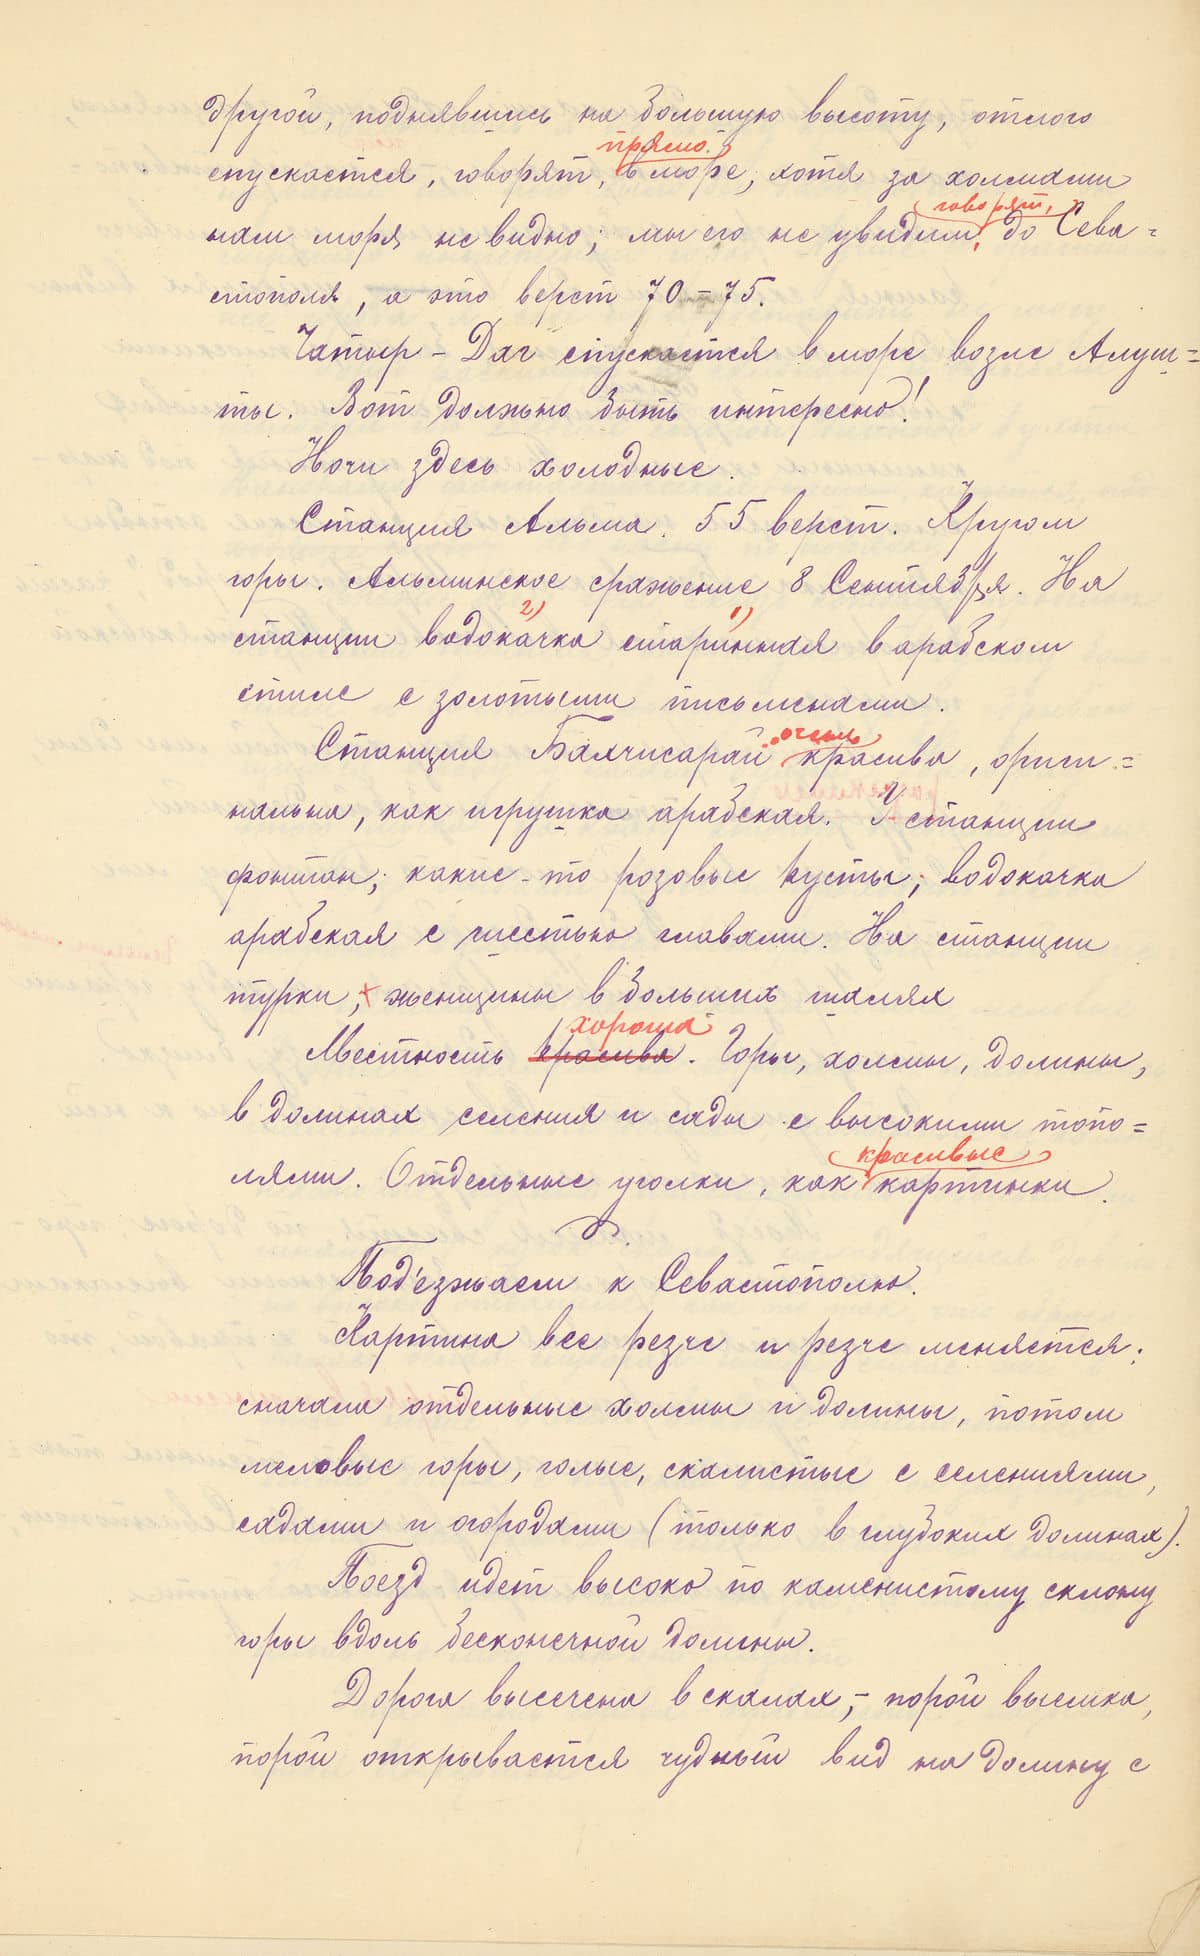 другой, поднявшись на большую высоту, отлого
прямо
спускается, говорят, в море, хотя за холмами
говорят,
нам моря не видно; мы его не увидим, до Сева=
стополя, а это верст 70–75.
Чатыр-Даг спускается в море возле Алуш=
ты. Вот должно быть интересно!
Ночи здесь холодные.
Станция Альма. 55 верст. Кругом
горы. Альминское сраженье 8 Сентября. На
2) 1)
станции водокачка старинная в арабском
стиле с золотыми письменами.
очень
Станция Бахчисарай красива, ориги=
нальна, как игрушка арабская. У станции
фонтан; какие-то розовые кусты; водокачка
арабская с шестью главами. На станции
турки, женщины в больших шалях
хороша
Местность красива. Горы, холмы, долины,
в долинах селения и сады с высокими топо=
красивые
лями. Отдельные уголки, как картинки.
Под'езжаем к Севастополю.
Картина все резче и резче меняется;
сначала отдельные холмы и долины, потом
меловые горы, голые, скалистые с селениями,
садами и огородами (только в глубоких долинах).
Поезд идет высоко по каменистому склону
горы вдоль бесконечной долины.
Дорога высечена в скалах, – порой выемка,
порой открывается чудный вид на долину с